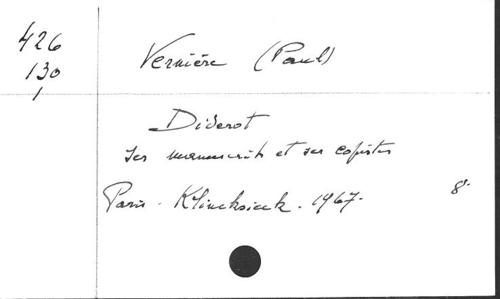 426
130
1
Vernière (Paul)
Diderot
ses manuscrits et ses copistes
Paris. Klincksieck. 1967. 8°